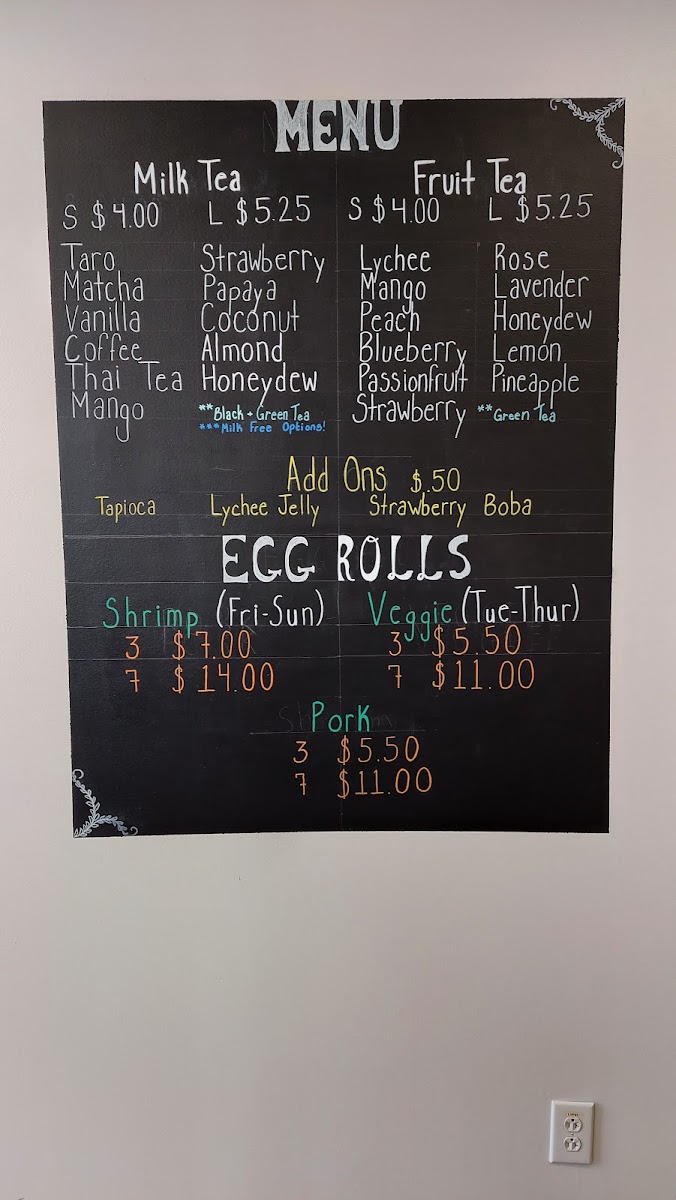 MENU
Milk Tea
S $4.00 L $5.25
Taro
Matcha
Vanilla
Coffee
Thai Tea
Mango
Strawberry
Papaya
Coconut
Almond
Honeydew
**Black + Green Tea
***Milk Free Options!
Fruit Tea
S $4.00 L $5.25
Lychee
Mango
Peach
Blueberry
Passionfruit
Strawberry
Rose
Lavender
Honeydew
Lemon
Pineapple
**Green Tea
Add Ons $.50
Tapioca Lychee Jelly Strawberry Boba
EGG ROLLS
Shrimp (Fri-Sun)
3 $7.00
7 $14.00
Veggie (Tue-Thur)
3 $5.50
7 $11.00
Pork
3 $5.50
7 $11.00